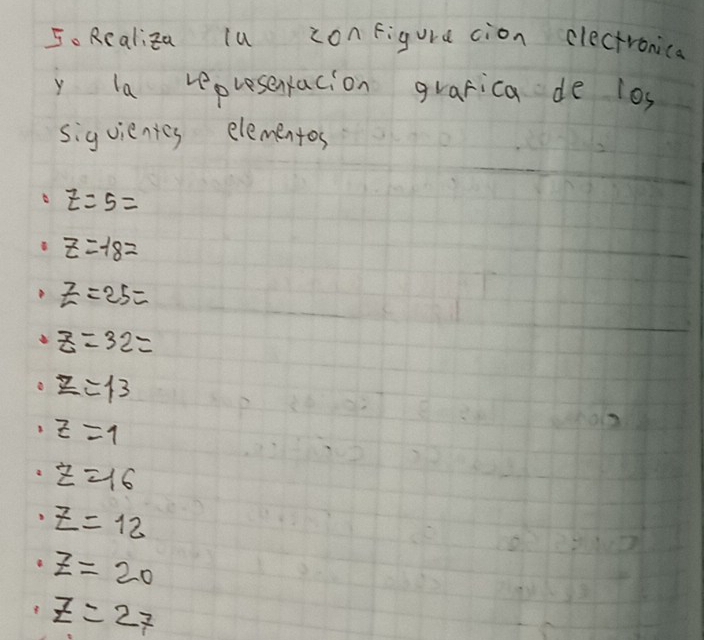 5. Realiza la configuracion electronica
y la representacion grafica de los
siguientes elementos
• Z=5=
• Z=18=
• Z=25=
• Z=32=
• Z=13
• Z=1
• Z=16
• Z=12
• Z=20
• Z=27